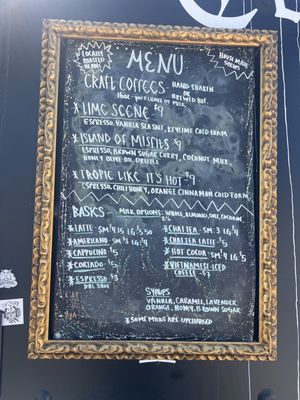 LOCALLY
ROASTED
BEANS
HOUSE MADE
SYRUPS
MENU
CRAFT COFFEES HAND SHAKEN
OR
16OZ YOUR CHOICE OF MILK BREWED HOT
*LIME SCENE $9
ESPRESSO, VANILLA SEA SALT, KEYLIME COLD FOAM
*ISLAND OF MISFITS $9
ESPRESSO, BROWN SUGAR CURRY, COCONUT MILK,
HONEY OLIVE OIL DRIZZLE
*TROPIC LIKE IT'S HOT $9
ESPRESSO, CHILI HONEY, ORANGE CINNAMON COLD FOAM
BASICS - MILK OPTIONS: WHOLE, ALMOND, OAT, COCONUT
*LATTE - SM $4.75 LG $5.50
*AMERICANO - SM $3 LG $4
*CAPPUCINO - $5
*CORTADO - $5
*ESPRESSO - $3
DBL SHOT
*CHAI TEA - SM $3 LG $4
*CHAI TEA LATTE $5
*HOT COCOA - SM $4 LG $5
*VIETNAMESE ICED
COFFEE
SYRUPS
VANILLA, CARAMEL, LAVENDER
ORANGE, HONEY, BROWN SUGAR
*SOME MILKS ARE UPCHARGED